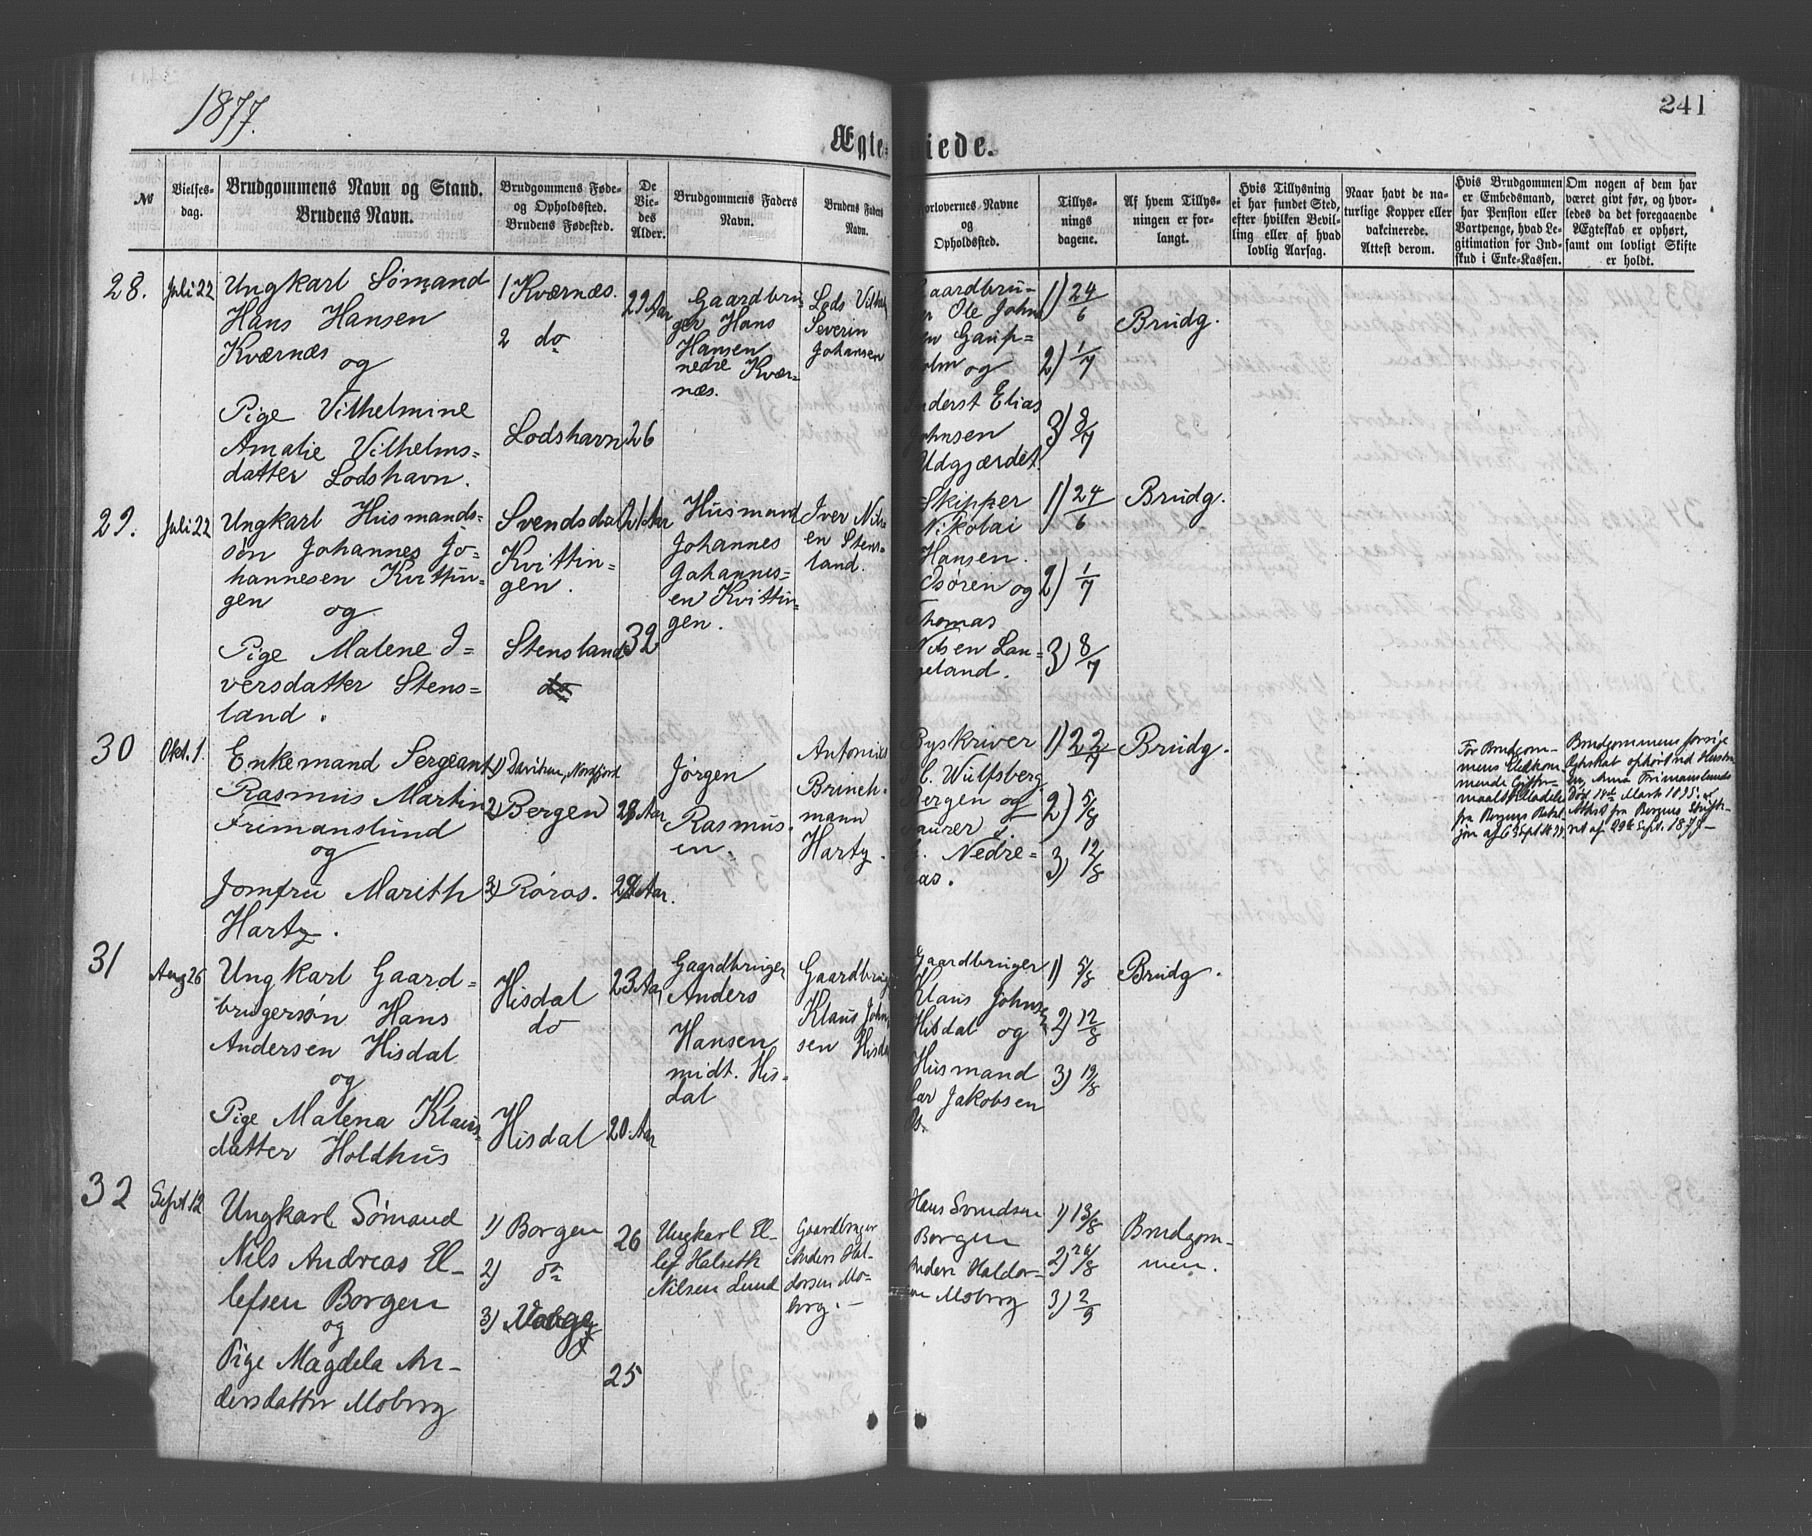 1877.
241
Ægte-
iede.
No
Vielses-
dag.
Brudgommens Navn og Stand.
Brudens Navn.
Brudgommens Føde-
og Opholdssted.
Brudens Fødested.
De
Vie-
des
Alder.
Brudgommens Faders
Navn.
Brudens Faders
Navn.
Forlovernes Navne
og
Opholdssted.
Tillys-
nings
dagene.
Af hvem Tillys-
ningen er for-
langt.
Hvis Tillysning
ei har fundet Sted,
efter hvilken Bevil-
ling eller af hvad
lovlig Aarsag.
Naar havt de na-
turlige Kopper eller
vakcinerede.
Attest derom.
Hvis Brudgommen
er Embedsmand,
har Pension eller
Vartpenge, hvad Le-
gitimation for Ind-
skud i Enke-Kassen.
Om nogen af dem har
været givt før, og hvor-
ledes da det foregaaende
Ægteskab er ophørt,
samt om lovligt Skifte
er holdt.
28.
Juli 22
Ungkarl Sømand
Hans Hansen
Kværnæs
og
Pige Vilhelmine
Amalie Vilhelms-
datter Lodshavn.
1 Kværnæs.
2 do
Lodshavn
29 Aar
26
Gaardbru-
ger Hans
Hansen
nedre Kvær-
næs.
Lods Vilhe
Severin
Johansen
aardbru-
r Ole John
en Gaup-
olm og
nderst Elias
Johnsen
Udgjærdet.
1) 24/6
2) 1/7
3) 8/7
Brudg.
29.
Juli 22
Ungkarl Husmands-
søn Johannes Jo-
hannesen Kvittin-
gen og
Pige Malene I-
versdatter Stens-
land.
Svendsdal
Kvittin-
gen.
Stensland
do
21 Aar
32
Husmand
Johannes
Johannes-
en Kvittin-
gen.
Iver Nils-
en Stens-
land.
Skipper
Nikolai
Hansen.
Osøren og
Thomas
Nilsen Lan-
geland.
1) 24/6
2) 1/7
3) 8/7
Brudg.
30
Okt. 1.
Enkemand Sergeant
Rasmus Martin
Frimanslund
og
Jomfru Marith
Hartz.
1) Daviken, Nordfjord
2) Bergen
3) Røros.
28 Aar
29 Aar.
Jørgen
Rasmus-
en.
Antonius
Brinch-
mann
Hartz.
Byskriver
C. Wulfsberg
Bergen og
Laurer
G. Nedre-
aas.
1) 22/7
2) 5/8
3) 12/8
Brudg.
For Brudgom-
mens
fra Bergens
af 6 Sept 1877.
Brudgommens forrige
Egteskab ophørt ved Hustru-
en, Anna Frimanslunds
Død 14de Marts 1875. cf
Attest fra Bergens Skifte-
ret af 29de Sept. 1877.
31
Aug 26
Ungkarl Gaard-
brugersøn Hans
Andersen Hisdal
og
Pige Malena Klaus-
datter Holdhus
Hisdal
do
Hisdal
23 Aar
20 Aar
Gaardbruger
Anders
Hansen
midt. His-
dal
Gaardbruger
Klaus John-
sen Hisdal
Gaardbruger
Klaus Johnsen
Hisdal og
Husmand
Lar Jakobsen
1) 5/8
2) 12/8
3) 19/8
Brudg.
32
Sept. 12
Ungkarl Sømand
Nils Andreas El-
lefsen Borgen
og
Pige Magdela An-
dersdatter Moberg
1) Borgen
2) do
3)
26
25
Ungkarl El-
lef Halseth
Nilsen Lund
Gaardbruger
Anders Hal-
dorsen Mo-
berg.
Hans Svendsen
Borgen
Anders Haldor-
en Moberg
1) 13/8
2) 26/8
3) 2/9
Brudgom-
men.